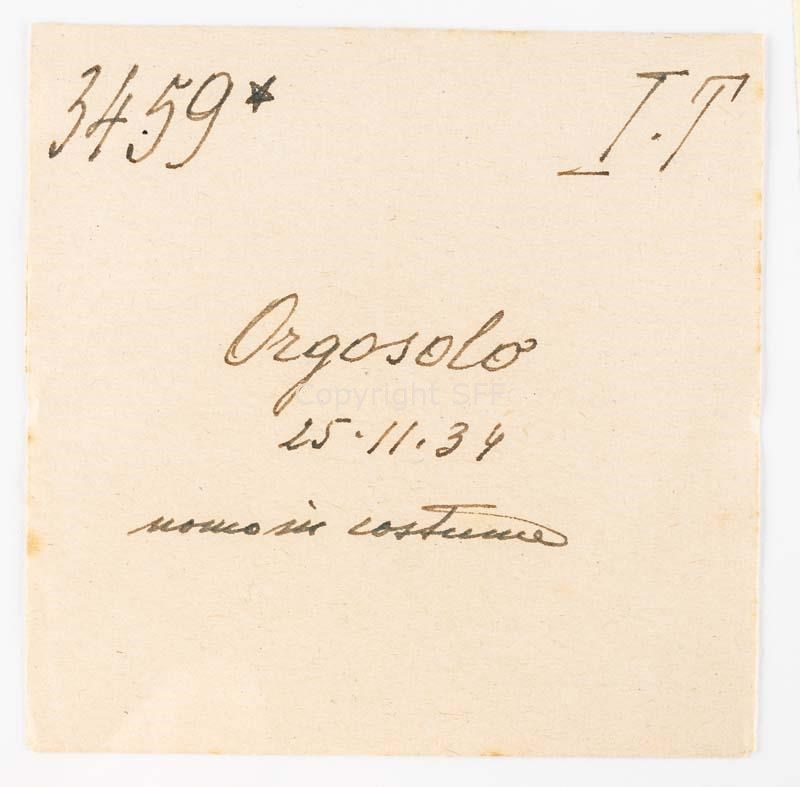 3459* I.T
Orgosolo
Copyright SFF
25.11.34
uomo in costume